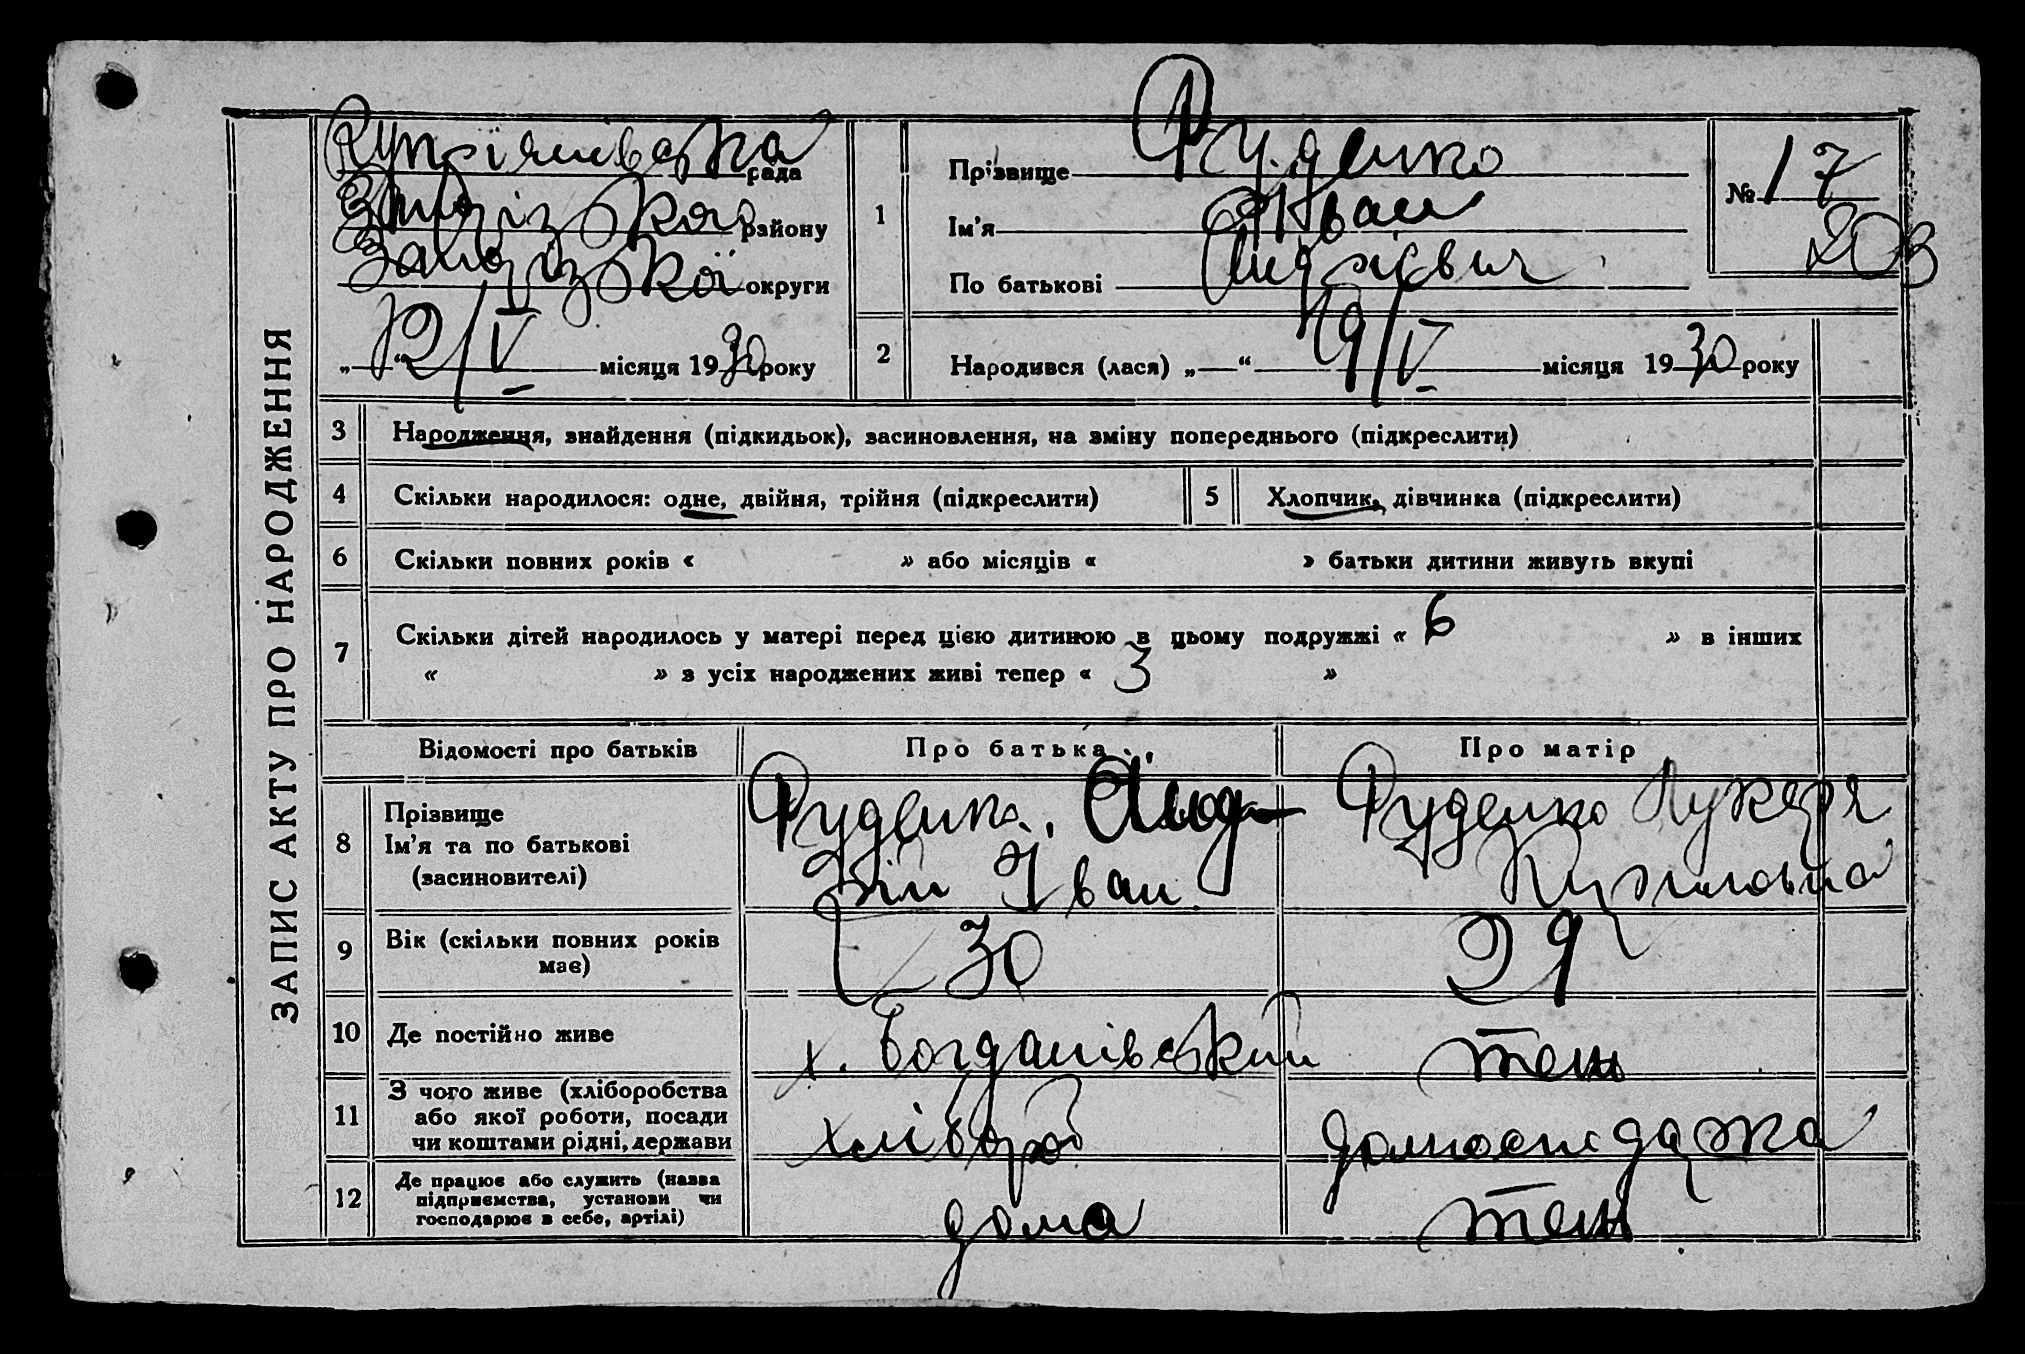 ЗАПИС АКТУ ПРО НАРОДЖЕННЯ
Купріянівська рада
Запорізького району
Запорізької округи
„12/V“ місяця 1930 року
1
Прізвище Руденко
Ім'я Іван
По батькові Андрієвич
№ 17
203
2 Народився (лася) „ “ 9/V місяця 1930 року
3 Народження, знайдення (підкидьок), засиновлення, на зміну попереднього (підкреслити)
4 Скільки народилося: одне, двійня, трійня (підкреслити)
5 Хлопчик, дівчинка (підкреслити)
6 Скільки повних років « » або місяців « » батьки дитини живуть вкупі
7 Скільки дітей народилось у матері перед цією дитиною в цьому подружжі « 6 » в інших
« » з усіх народжених живі тепер « 3 »
Відомості про батьків Про батька Про матір
8 Прізвище
Ім'я та по батькові
(засиновителі)
Руденко Анд-
рій Іван
Руденко Лукеря
9 Вік (скільки повних років
має)
30 29
10 Де постійно живе х. Богданівський теж
11 З чого живе (хліборобства
або якої роботи, посади
чи коштами рідні, держави
хлібороб
12 Де працює або служить (назва
підприємства, установи чи
господарює в себе, артілі)
дома теж